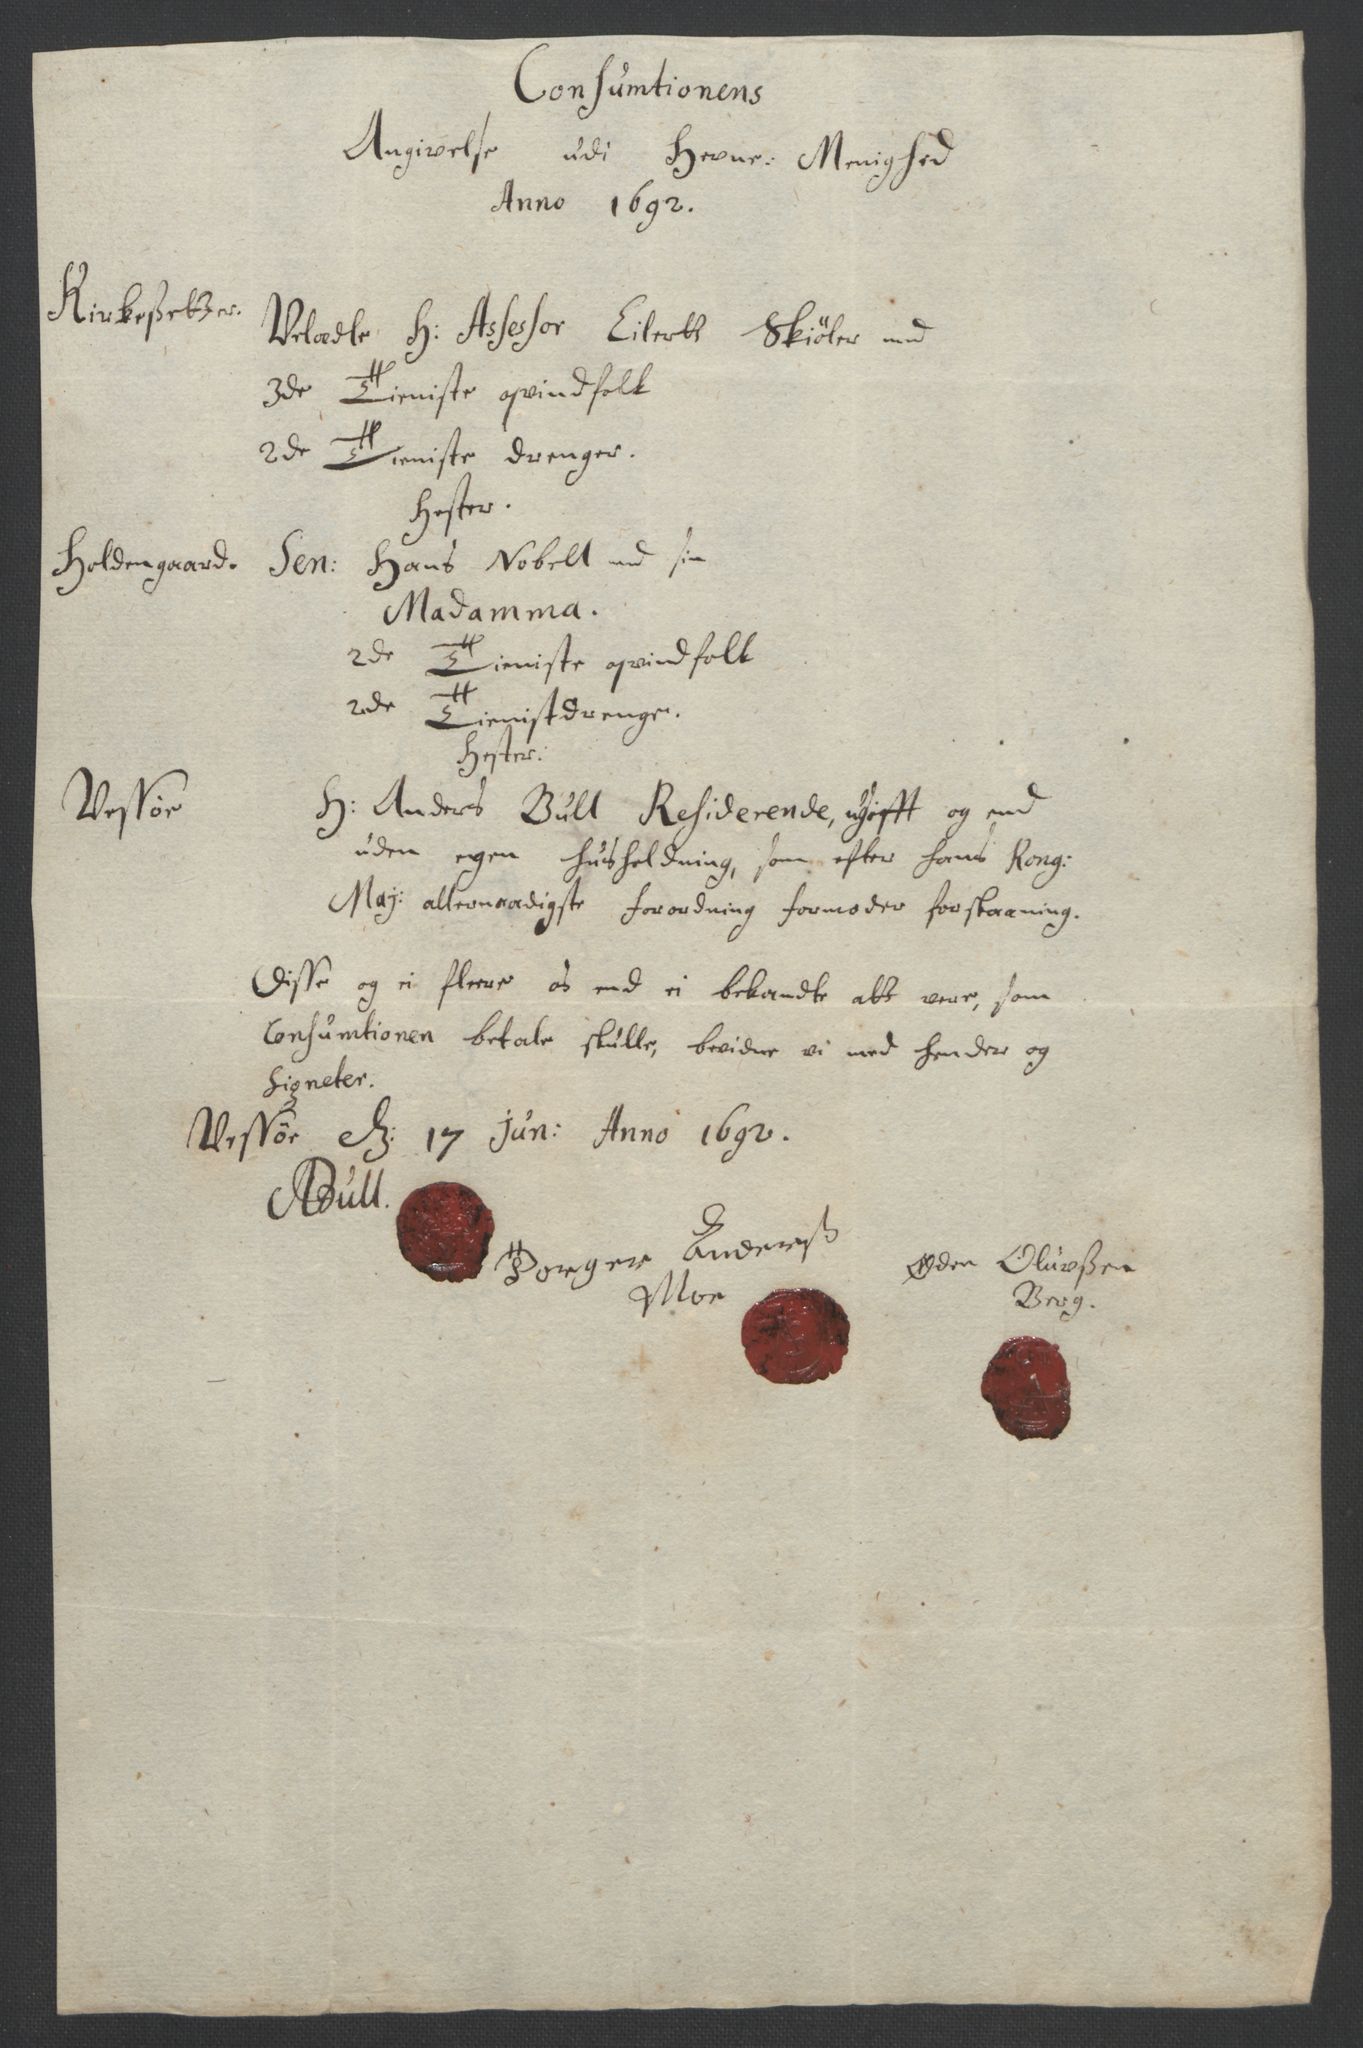 Consumtionens
Angivelse udi Hevne: Menighed
Anno 1692.
Kirkeßetter. Veladle H: Assessor Eilertt Skiöler med
3de Tieniste qvindfolk
2de Tieniste drenger.
Hester.
Holdengaard. Sen: Hans Nobell med sin
Madamma.
2de Tieniste qvindfolk
2de Tienistdrenge.
Hester:
Vessøe H: Anders Bull Residerende, ugifft og end
uden egen huusholdning, som efter hans Kong:
Maj: allernaadigste forordning formoder forskaaning.
Disse og ei fleere os end ei bekandte att vere, som
Consumtionen betale skulle, bevidne vi med hender og
Signeter.
Vessøe d: 17 Jun: Anno 1692.
ABull.
Borger Anderß Oden Oluvßen
Moe Berg.